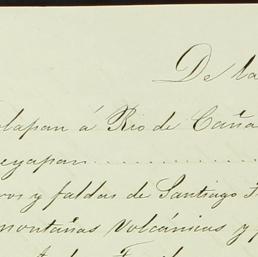 De la
lapan á Rio de Caña
eyapan
os y faldas de Santiago
montañas Volcánicas y